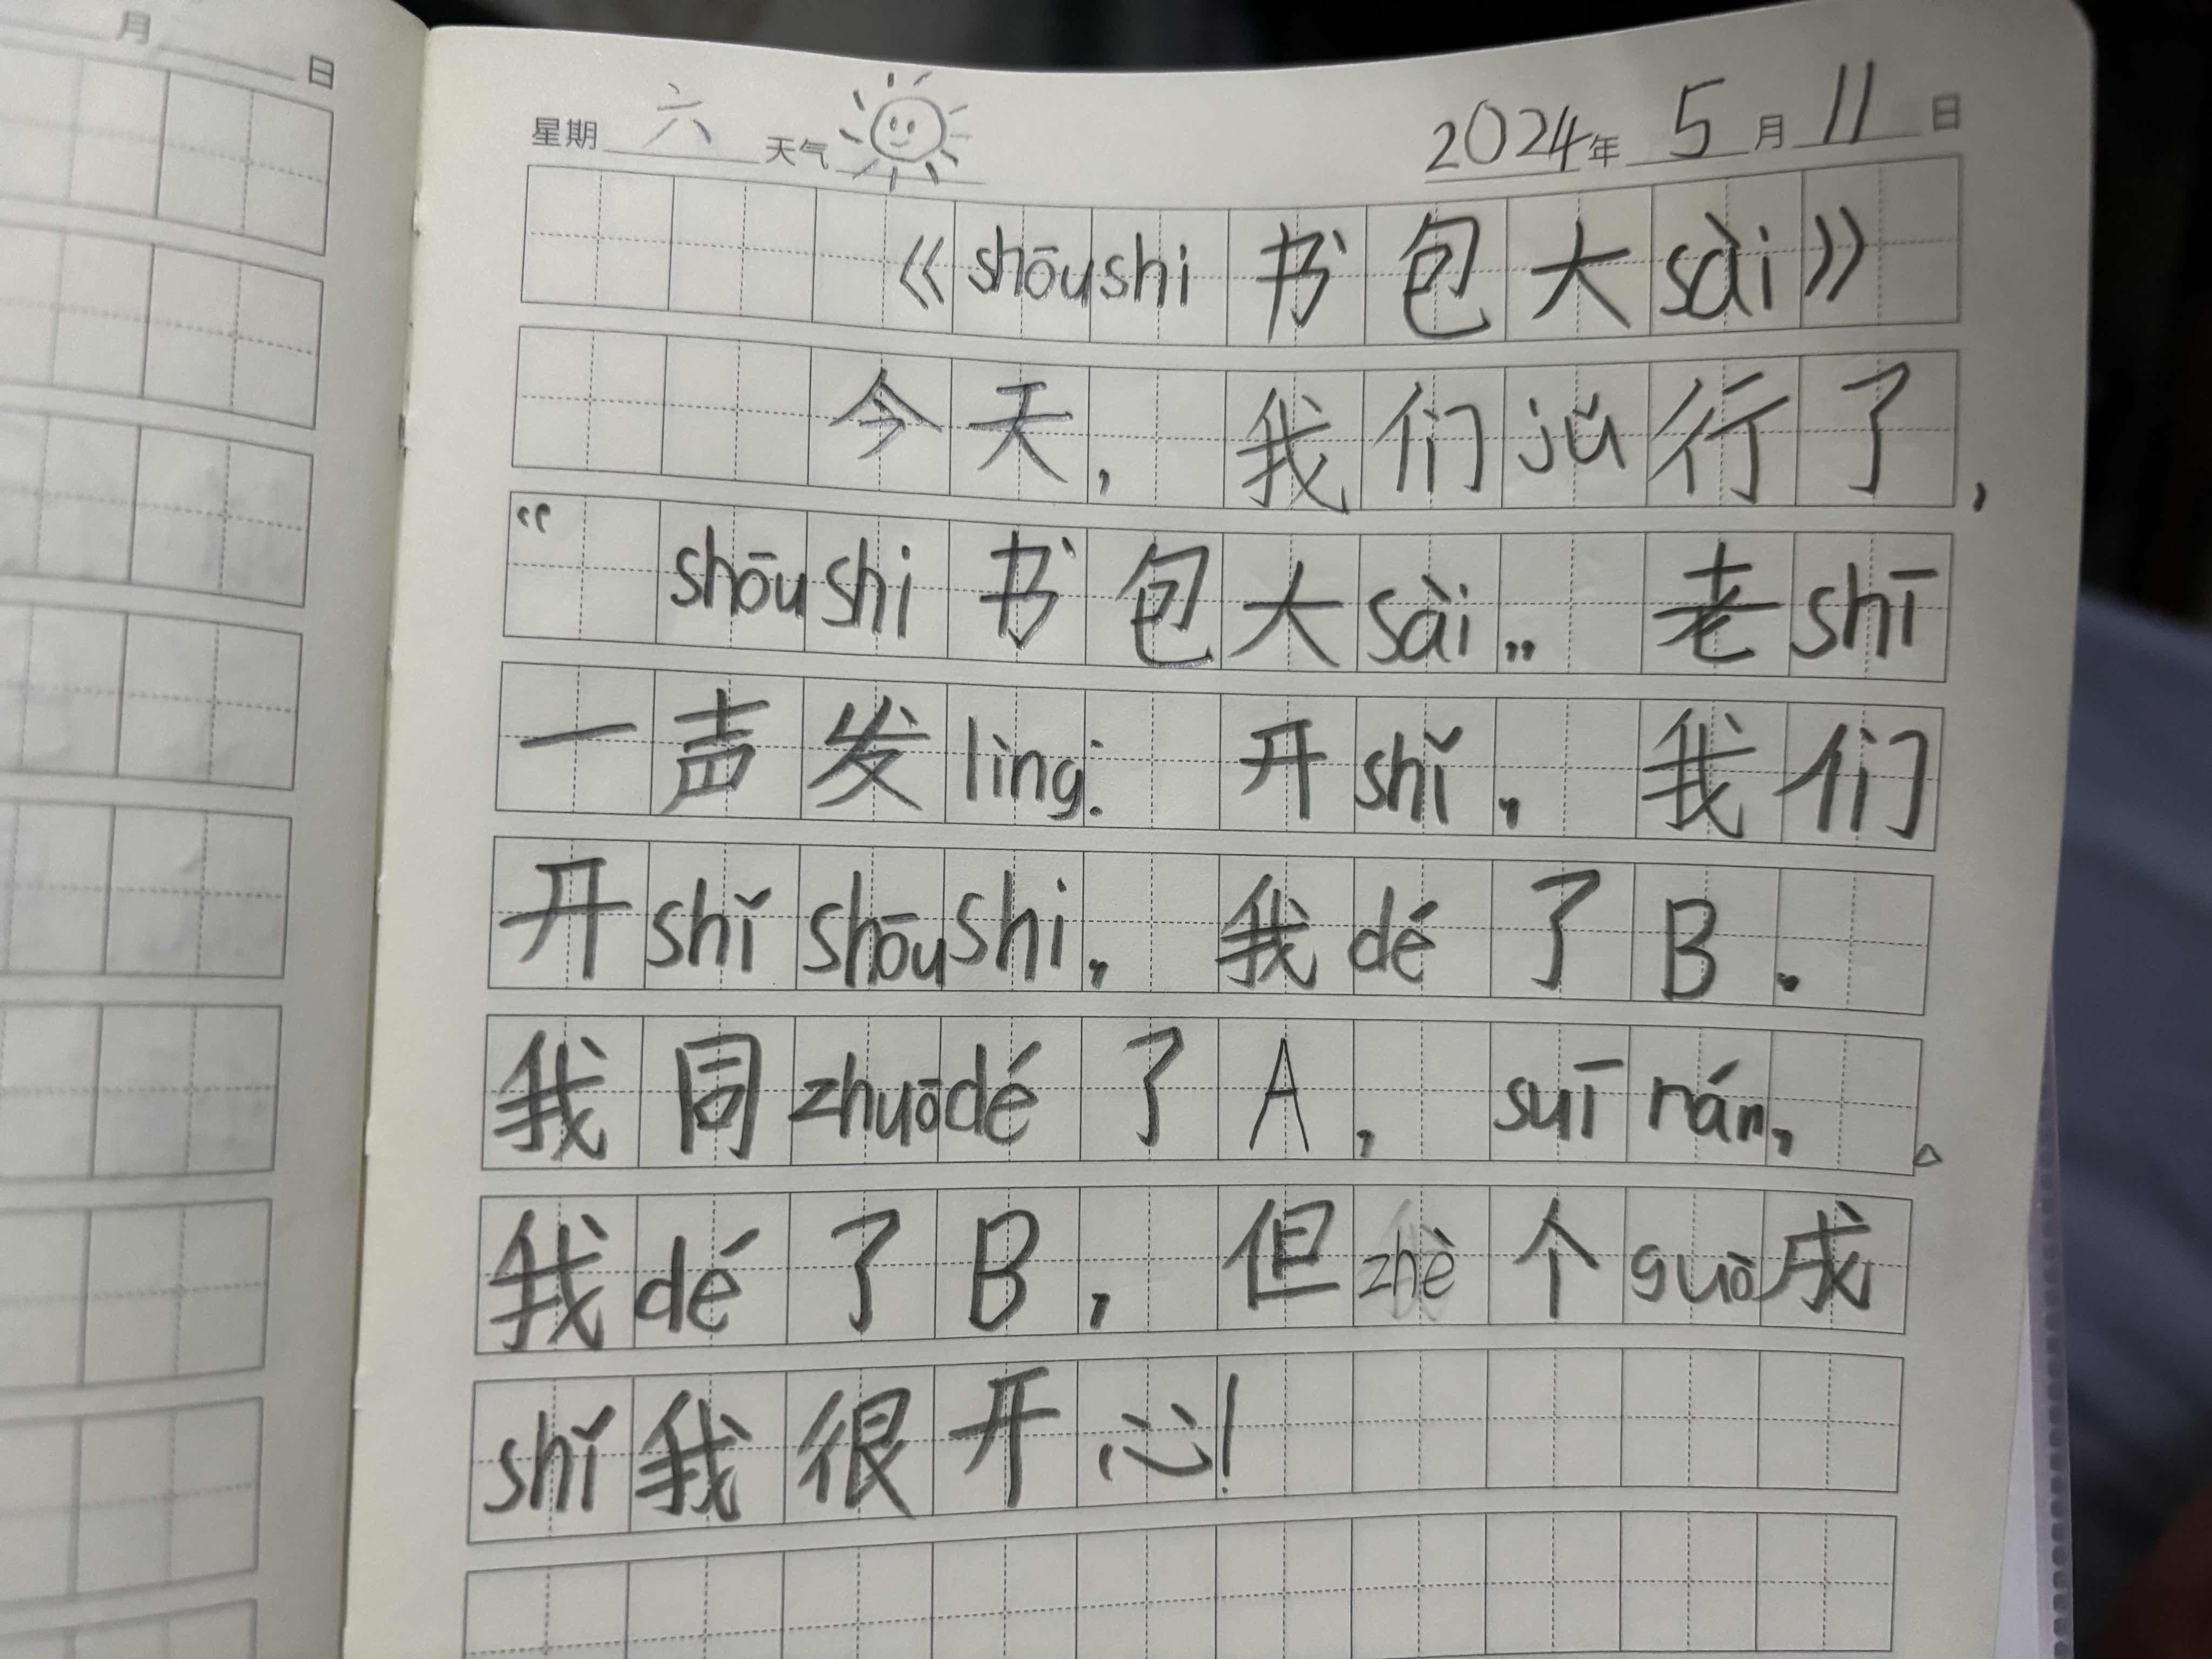 月 日
星期 六 天气 2024年 5月 11日
《shōushi 书包大sài》
今天，我们jǔ行了，
“shōushi书包大sài”老shī
一声发lìng：开shǐ，我们
开shǐ shōushi，我dé了B.
我同zhuōdé了A，suī rán，
我dé了B，但zhè个guò成
shǐ我很开心！